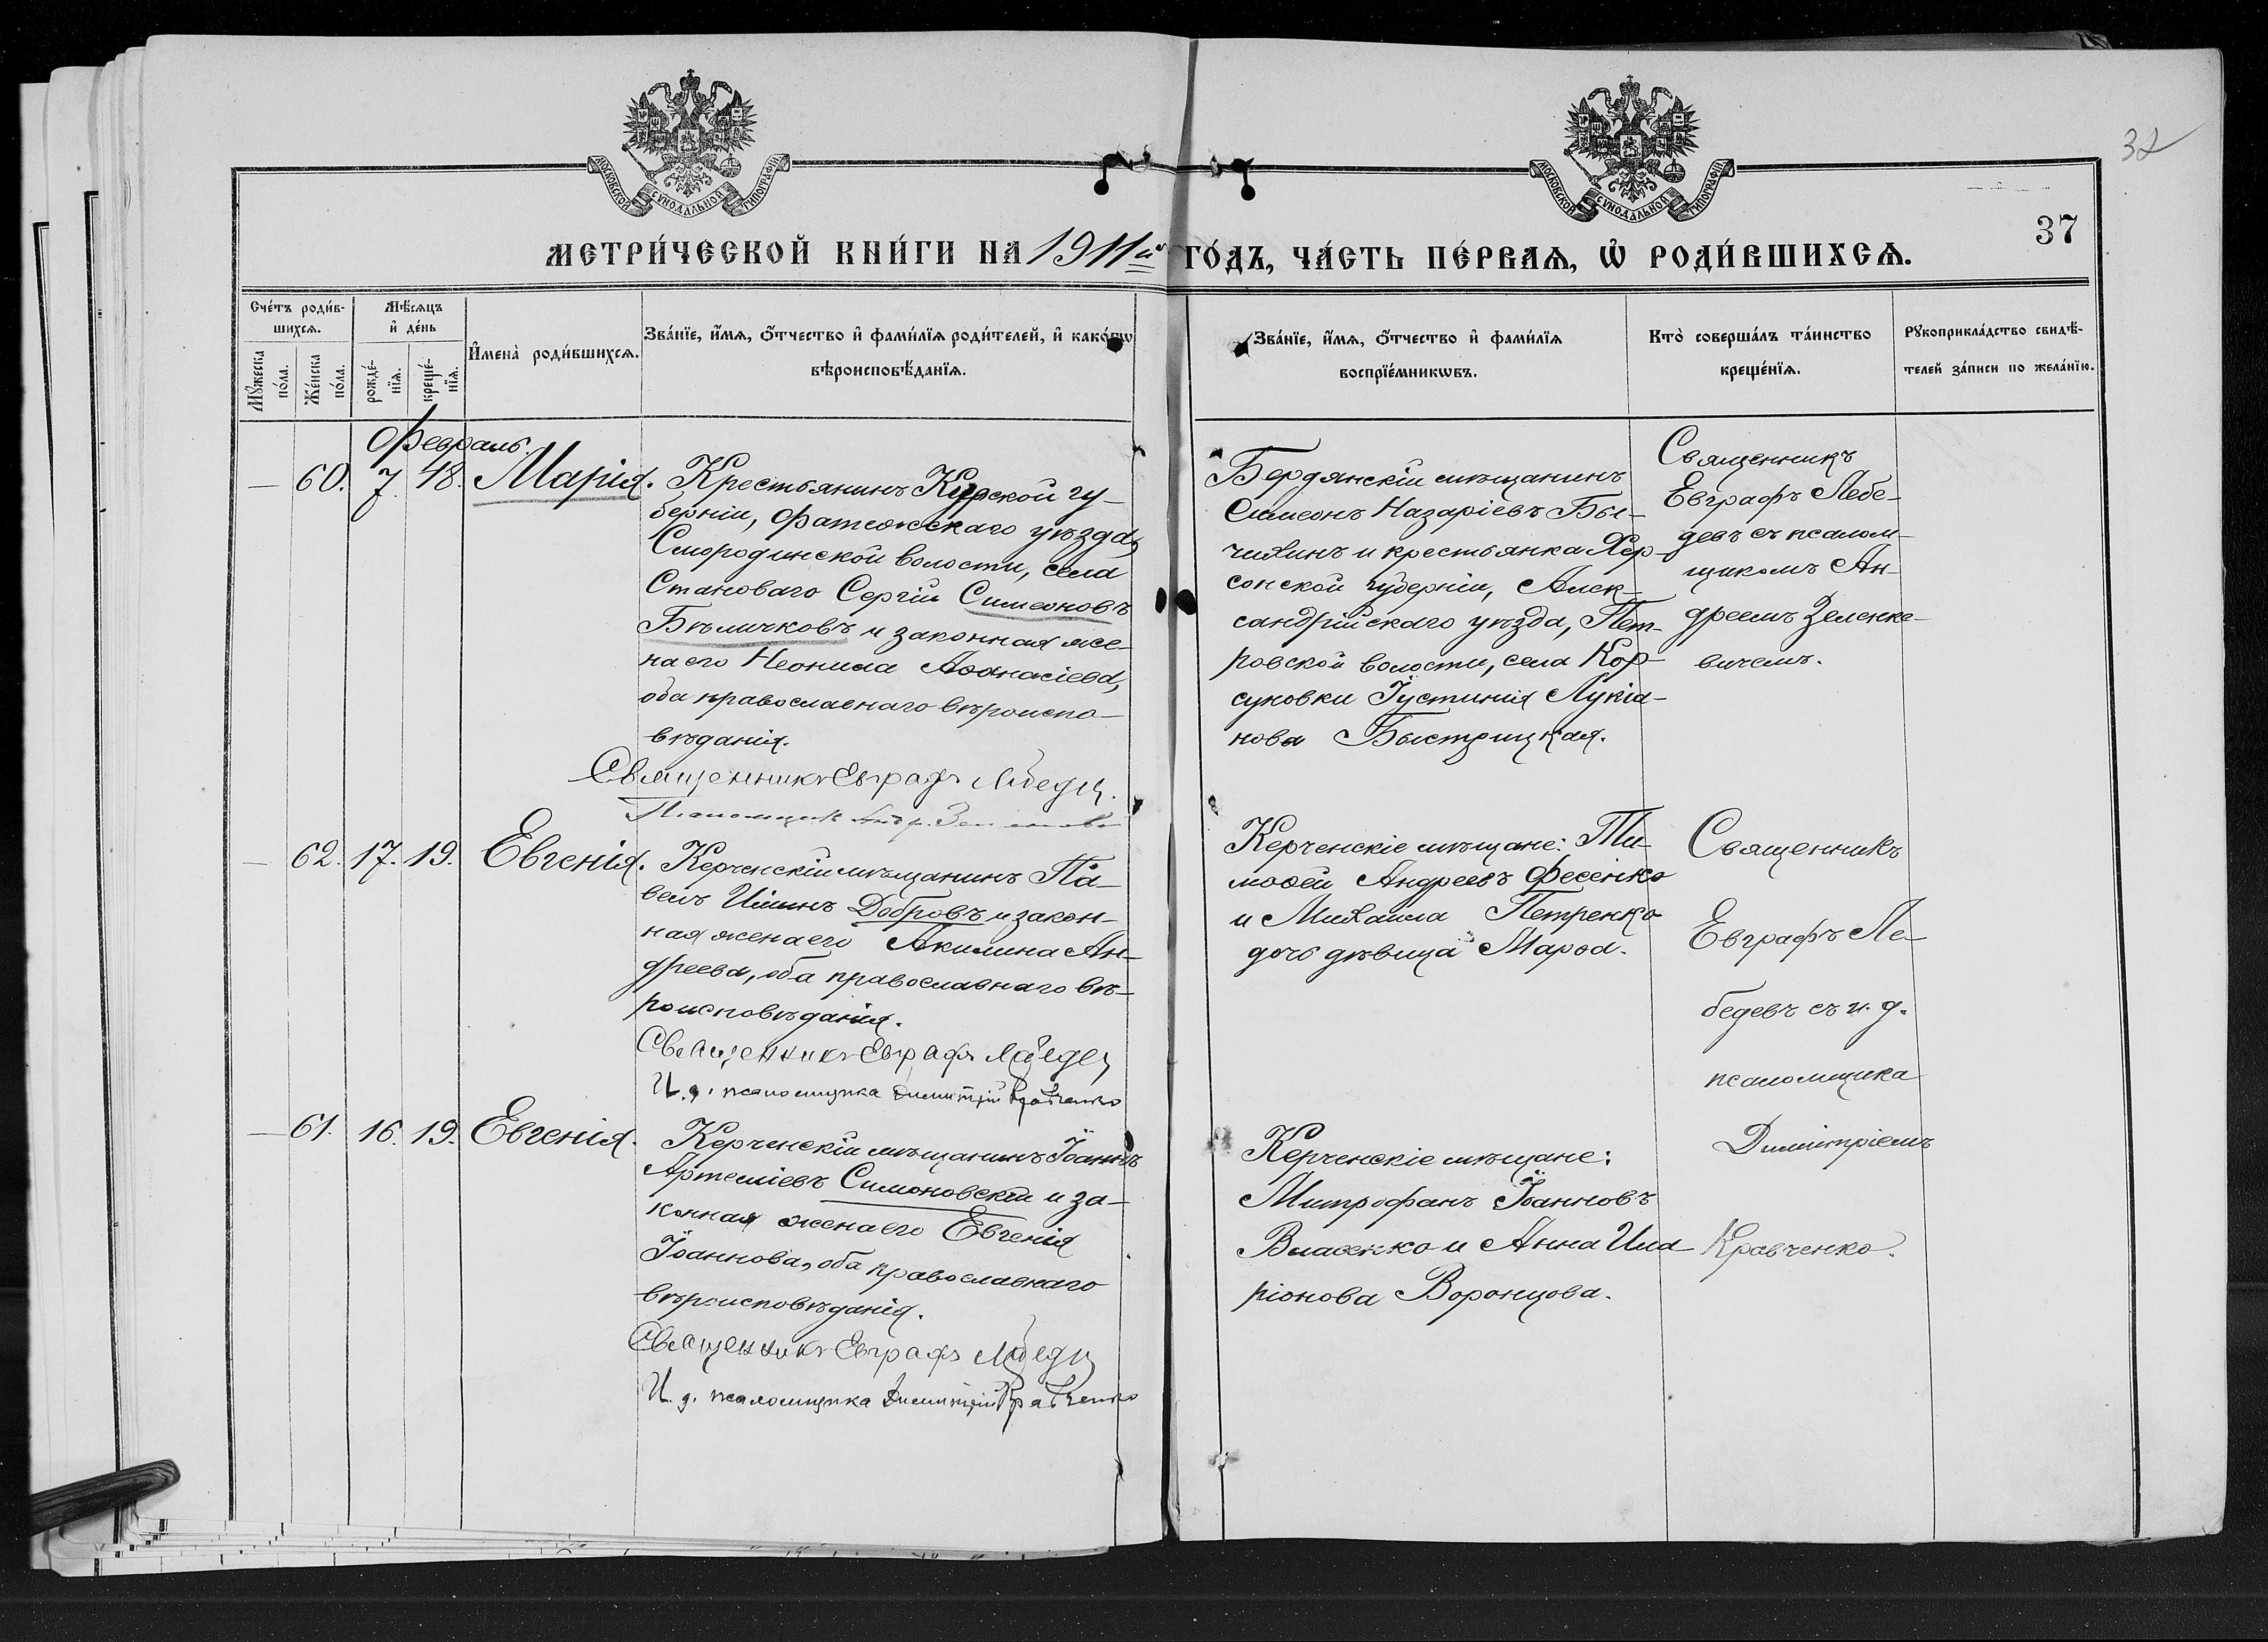 МОСКОВСКОЙ СѴНОДАЛЬНОЙ ТИПОГРАФІИ
МОСКОВСКОЙ СѴНОДАЛЬНОЙ ТИПОГРАФІИ
32
37
МЕТРИ́ЧЕСКОЙ КНИ́ГИ НА 1911й ГО́ДЪ, ЧА́СТЬ ПЕ́РВАѦ, Ѡ҆ РОДИ́ВШИХСѦ.
Сче́тъ роди́в-
шихсѧ.
Мꙋ́жеска по́ла.
Же́нска по́ла.
Мѣ́сѧцъ
и҆ де́нь
рожде́-
нїѧ.
креще́-
нїѧ.
И҆мена̀ роди́вшихсѧ.
Зва́нїе, и҆́мѧ, ѻ҆́тчество и҆ фами́лїѧ роди́телей, и҆ како́гѡ
вѣроисповѣ́данїѧ.
Зва́нїе, и҆́мѧ, ѻ҆́тчество и҆ фами́лїѧ
воспрїе́мникѡвъ.
Кто̀ соверша́лъ та́инство
креще́нїѧ.
Рꙋкоприкла́дство свидѣ́-
телей за́писи по жела́нїю.
Февраль.
— 60. 7. 18. Марія.
Крестьянинъ Курской гу-
берніи, Фатежскаго уѣзда,
Смородинской волости, села
Становаго Сергій Симеоновъ
Бѣличковъ и законная же-
на его Неонила Аѳанасіева,
оба православнаго вѣроиспо-
вѣданія.
Священникъ Евграфъ Лебедев.
Псаломщикъ
Бердянскій мѣщанинъ
Симеонъ Назаріевъ Бы-
чихинъ и крестьянка Хер-
сонской губерніи, Алек-
сандрійскаго уѣзда, Пет-
ровской волости, села Кор-
суновки Іустинія Лукіа-
нова Быстрицкая.
Священникъ
Евграфъ Лебе-
девъ съ псалом-
щикомъ Ан-
дреемъ Зеленке-
вичемъ.
— 62. 17. 19. Евгенія.
Керченскій мѣщанинъ Па-
велъ Ильинъ Добровъ и закон-
ная жена его Акилина Ан-
дреева, оба православнаго вѣ-
роисповѣданія.
Священникъ Евграфъ Лебедев
И. д. псаломщика Димитрій Кравченко
Керченскіе мѣщане: Ти-
моѳей Андреевъ Фесенко
и Михаила Петренко
дочь дѣвица Марѳа.
Священникъ
Евграфъ Ле-
бедевъ съ и. д.
псаломщика
Димитріемъ
Кравченко.
— 61. 16. 19. Евгенія.
Керченскій мѣщанинъ Іоаннъ
Артеміевъ Симоновскій и за-
конная жена его Евгенія
Іоаннова, оба православнаго
вѣроисповѣданія.
Священникъ Евграфъ Лебедев
И. д. псаломщика Димитрій Кравченко
Керченскіе мѣщане:
Митрофанъ Іоанновъ
Власенко и Анна Ила-
ріонова Воронцова.